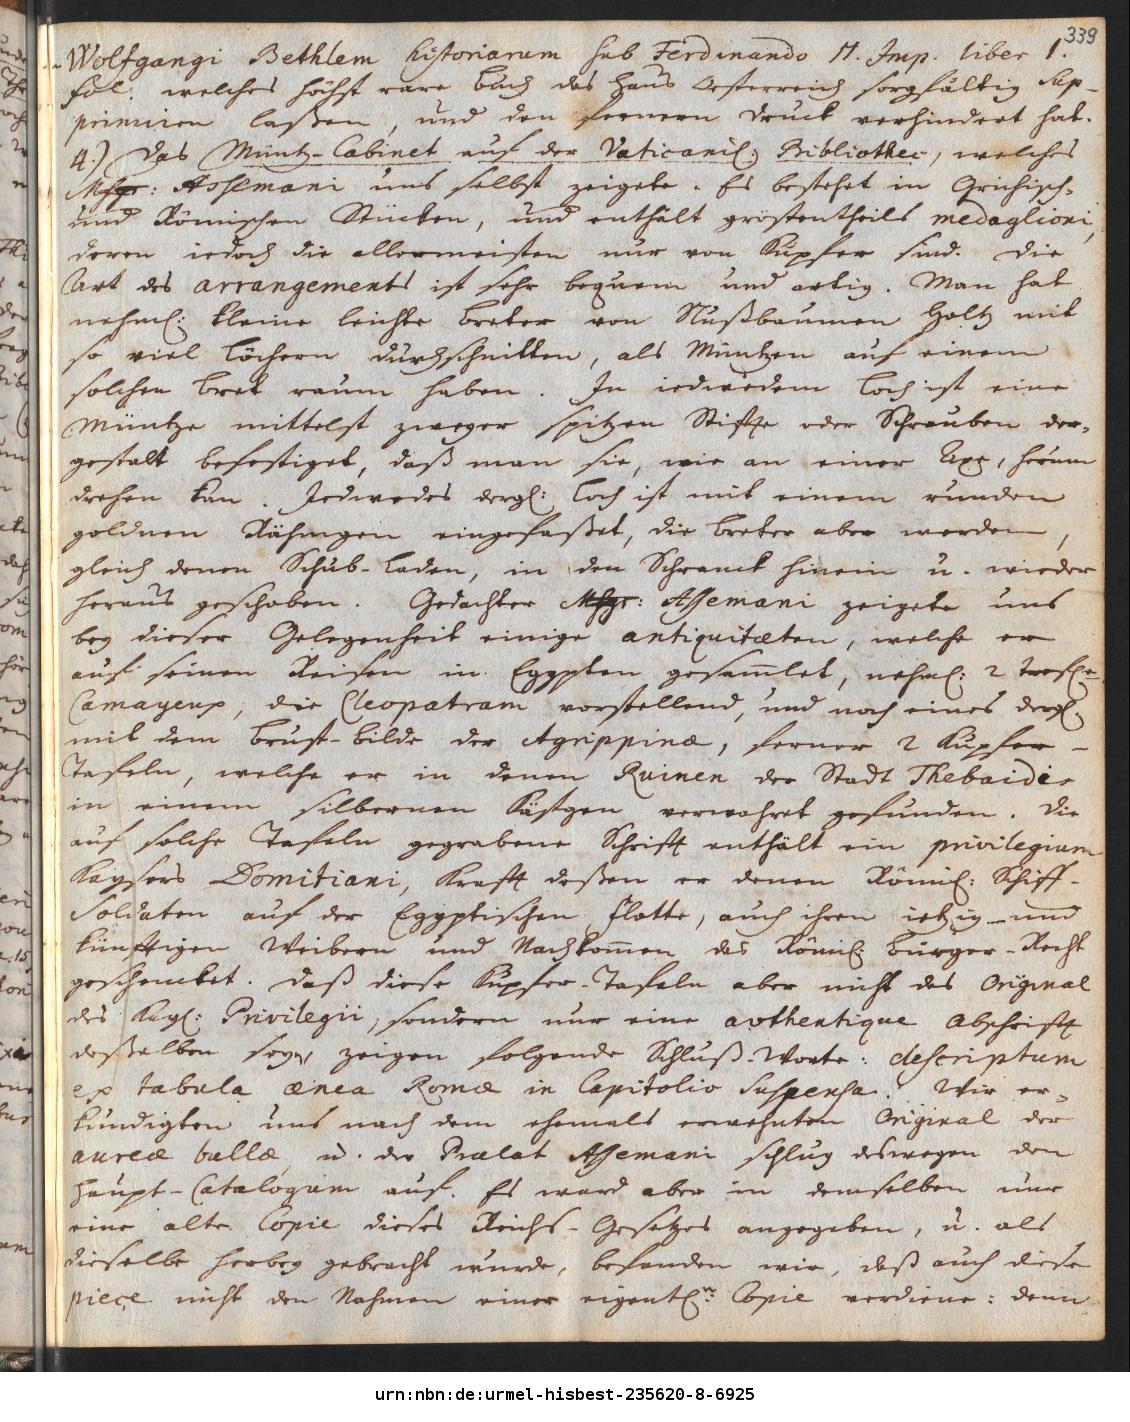 339
Wolfgangi Bethlem historiarum sub Ferdinando II. Imp. liber 1.
fol. welches höchst rare Buch das Hauß Oesterreich sorgfältig sup-
primiren laßen, und den fernern Druck verhindert hat.
4.) Das Müntz-Cabinet auf der Vaticanis: Bibliothec, welches
Msgr: Assemani uns selbst zeigete. Es bestehet in Grichisch-
und Römischen Stücken, und enthält gröstentheils medaglioni,
deren iedoch die allermeisten nur von Kupfer sind. Die
Art des arrangements ist sehr bequem und artig. Man hat
nehml: kleine leichte Breter von Nußbaumen Holtz mit
so viel Löchern durchschnitten, als Müntzen auf einem
solchen Bret raum haben. In iedwedem Loch ist eine
Müntze mittelst zweyer spitzen Stiffte oder Schrauben der-
gestalt befestiget, daß man sie, wie an einer Axe, herum
drehen kan. Iedwedes dergl: Loch ist mit einem runden
goldnen Rähmgen eingefaßet, die Breter aber werden,
gleich denen Schub-Laden, in den Schranck hinein u. wieder
heraus geschoben. Gedachter Msgr: Assemani zeigete uns
bey dieser Gelegenheit einige antiquitæten, welche er
auf seinen Reisen in Egypten gesam̄let, nehml: 2
Camayeux, die Cleopatram vorstellend, und noch eines dergl.
mit dem Brust-Bilde der Agrippinæ, ferner 2 Kupfer-
Tafeln, welche er in denen Ruinen der Stadt Thebaidis
in einem silbernen Kästgen verwahret gefunden. Die
auf solche Tafeln gegrabene Schrifft enthält ein privilegium
Kaysers Domitiani, Krafft deßen er denen Römis: Schiff-
Soldaten auf der Egyptischen Flotte, auch ihren ietzig- und
künfftigen Weibern und Nachkom̄en das Römis: Bürger-Recht
geschencket. Daß diese Kupfer-Tafeln aber nicht das Original
des Kays: Privilegii, sondern nur eine avthentique Abschrifft
deßelben seyn, zeigen folgende Schluß-Worte: descriptum
ex tabula ænea Romæ in Capitolio suspensa. Wir er-
kundigten uns nach dem ehemals erwehnten Original der
aureæ bullæ, u. der Prælat Assemani schlug deswegen den
Haupt-Catalogum auf. Es ward aber in demselben nur
eine alte Copie dieses Reichs-Gesetzes angegeben, u. als
dieselbe herbey gebracht wurde, befanden wir, daß auch diese
pieçe nicht den Nahmen einer eigentln: Copie verdiene: denn
urn:nbn:de:urmel-hisbest-235620-8-6925